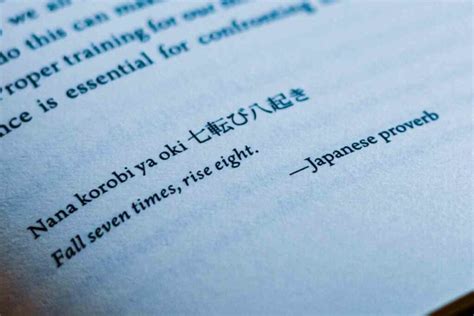 we all
do this can make
Proper training for our m
nce is essential for confronting
Nana korobi ya oki 七転び八起き
Fall seven times, rise eight.
—Japanese proverb